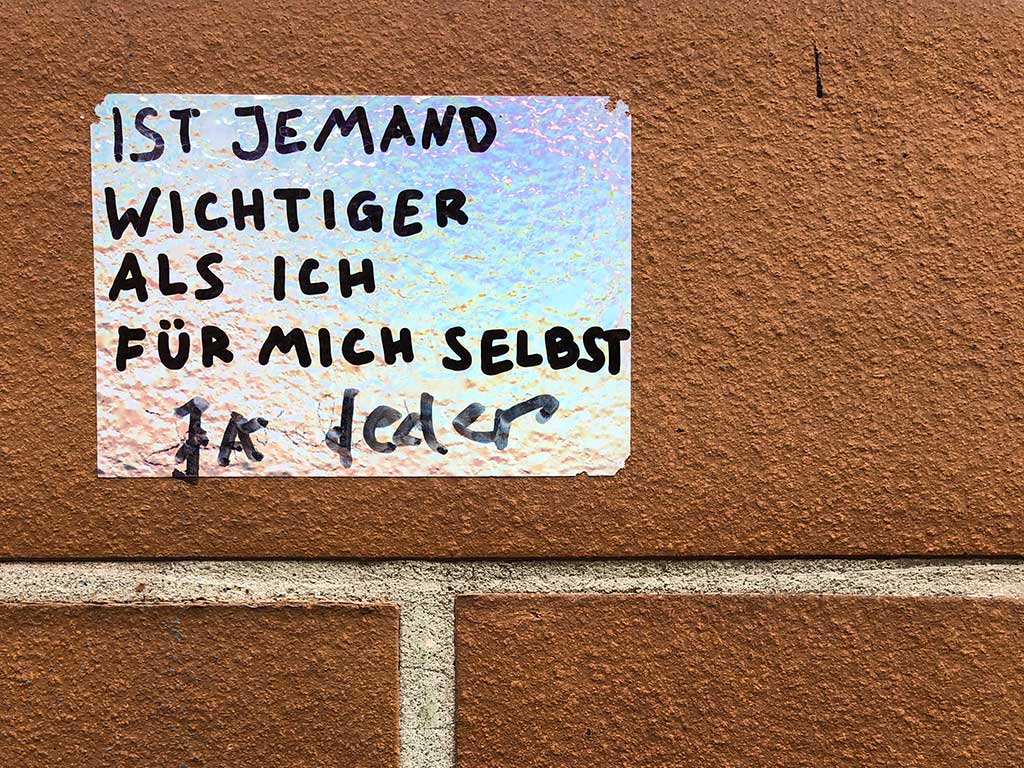 IST JEMAND
WICHTIGER
ALS ICH
FÜR MICH SELBST
Ja Jeder